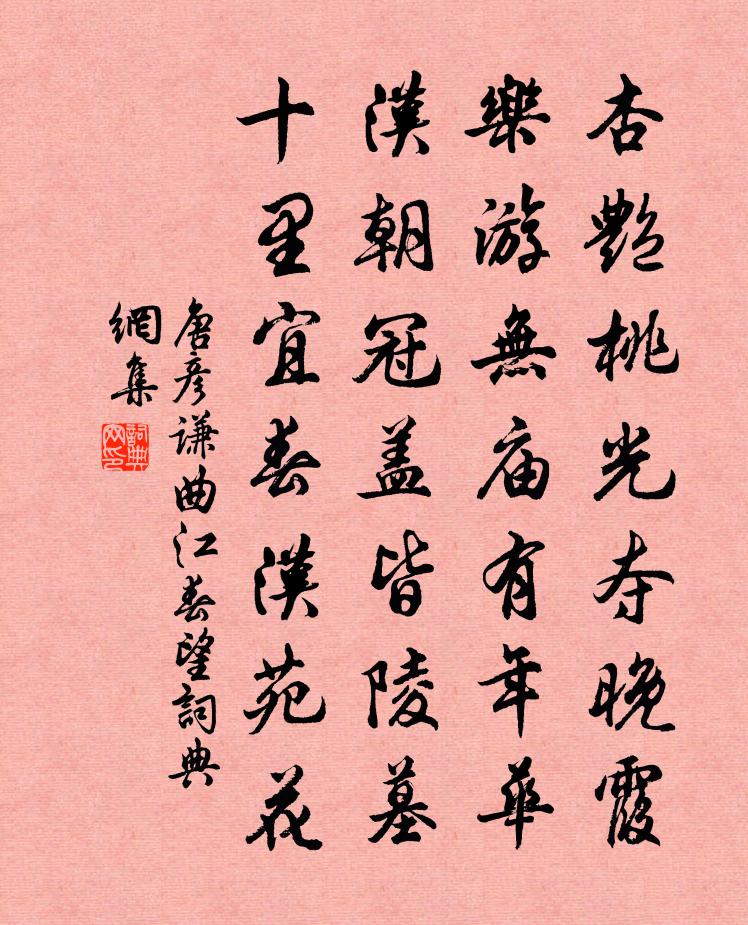 杏艷桃光夺晚霞
樂游無庙有年華
漢朝冠盖皆陵墓
十里宜春漢苑花
唐彦謙曲江春望詞典
網集
詞典
网印